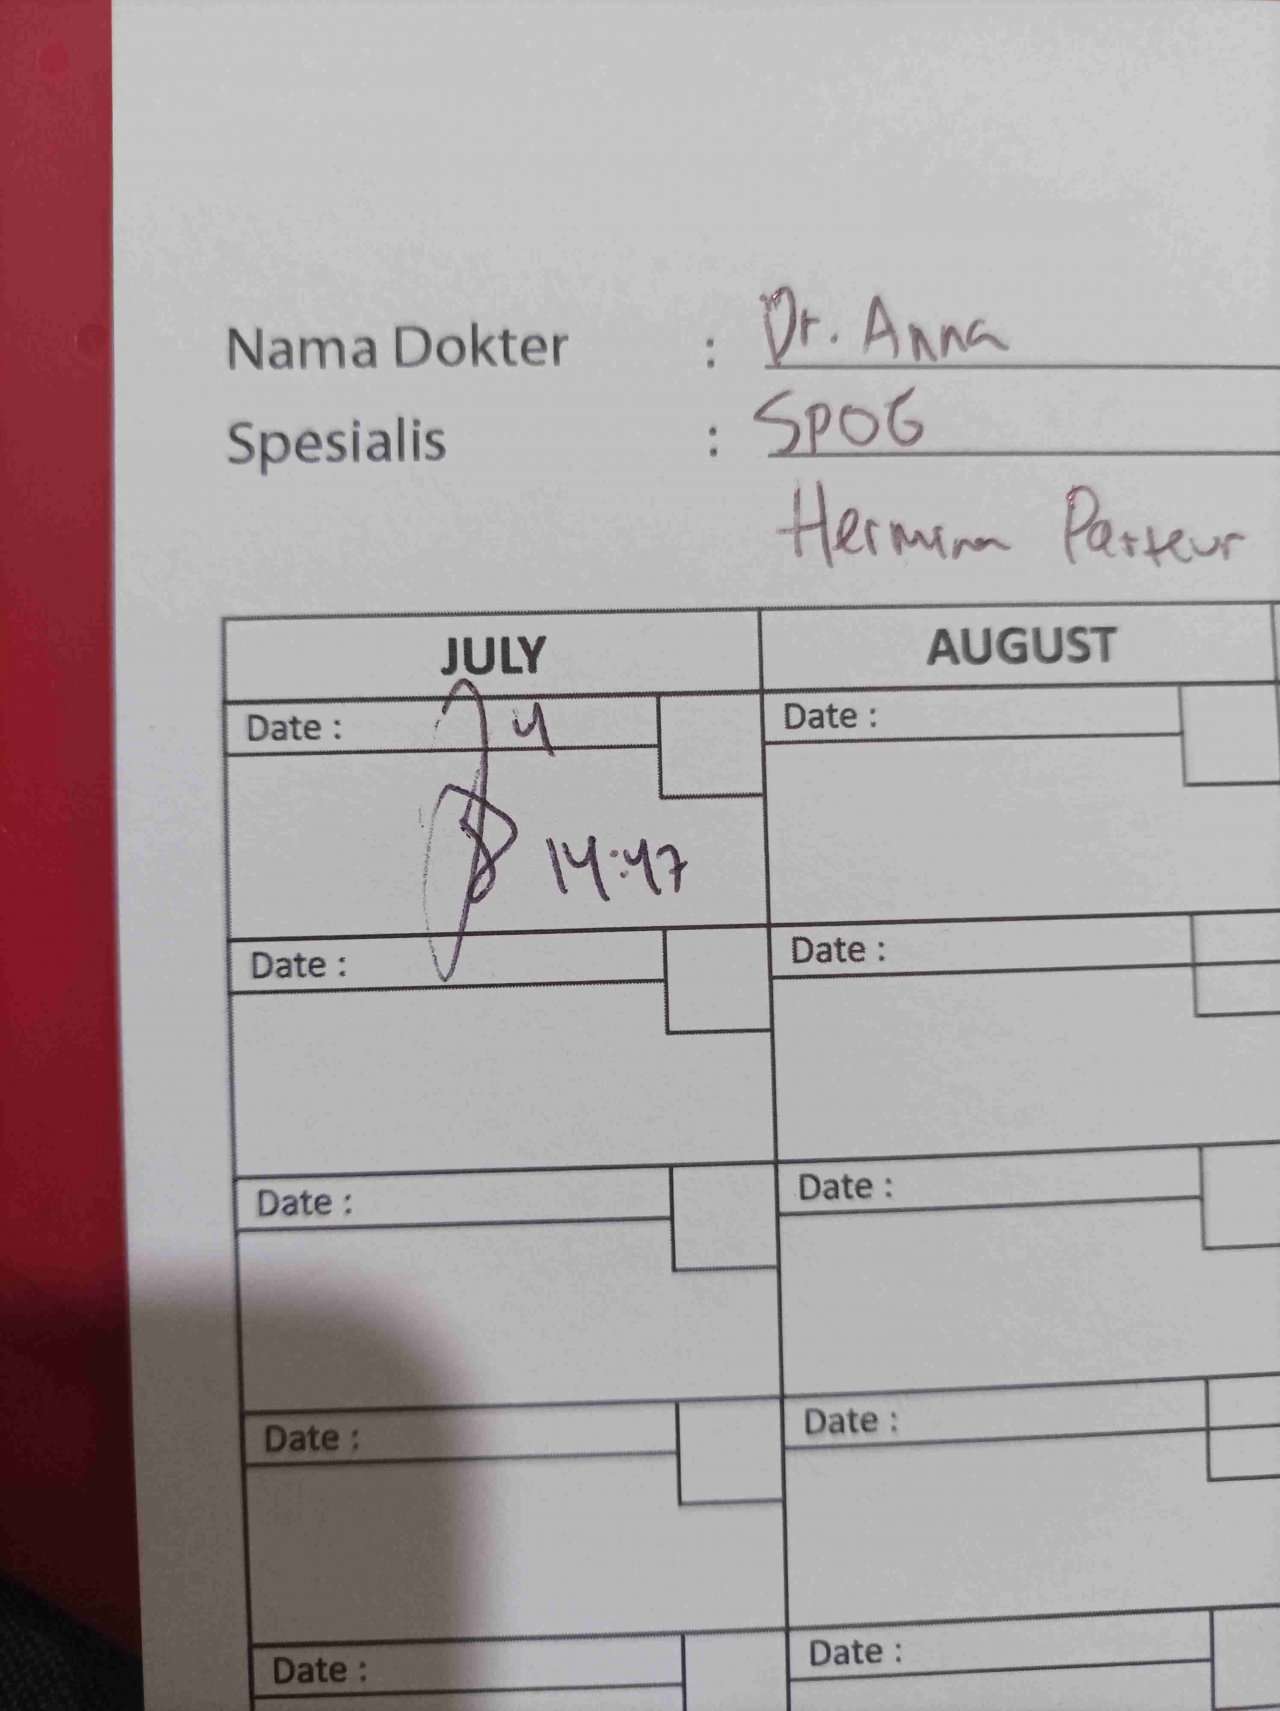 Nama Dokter : Dr. Anna
Spesialis : SPOG
Hermina Pasteur
JULY AUGUST
Date : 4 Date :
14:47
Date : Date :
Date : Date :
Date : Date :
Date : Date :